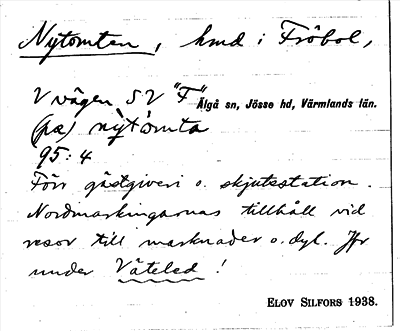 Nytomten, hmd i Fröbol,
V vägen SV "F" Älgå sn, Jösse hd, Värmlands län.
(pa) nỳtòmta
95:4
Förr gästgiveri o. skjutsstation.
Nordmarkingarnas tillhåll vid
resor till marknader o. dyl. Jfr
under Väteled!
ELOV SILFORS 1938.